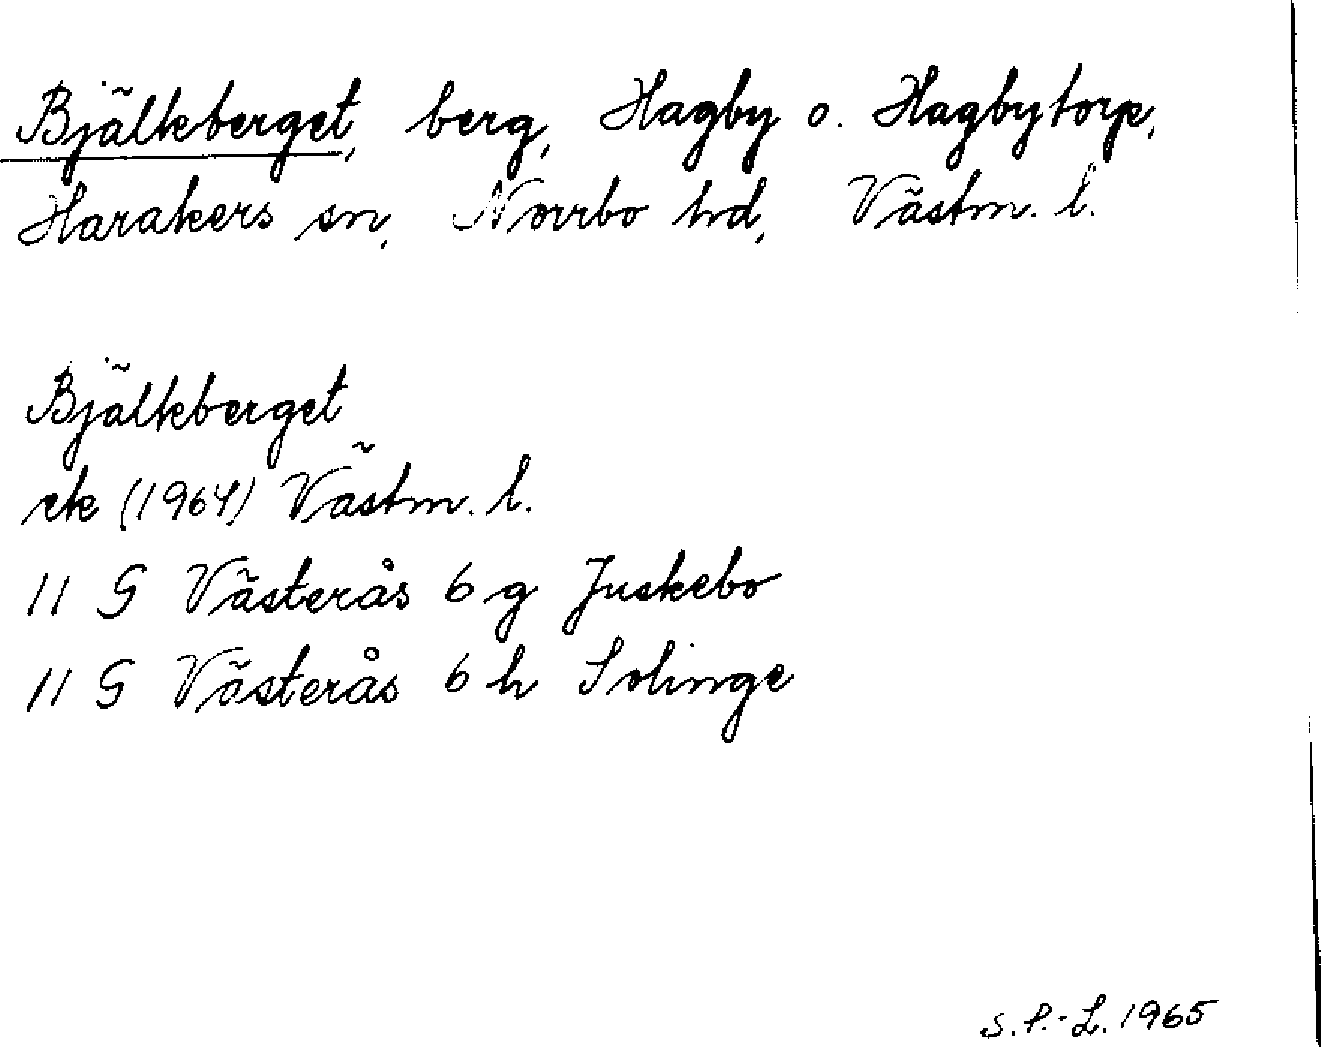 Bjälkeberget, berg, Hagby o. Hagbytorp,
Harakers sn, Norrbo hd, Västm. l.
Bjälkeberget
ek (1964) Västm. l.
11 G Västerås 6 g Juskebo
11 G Västerås 6 h Solinge
S.P.-L. 1965